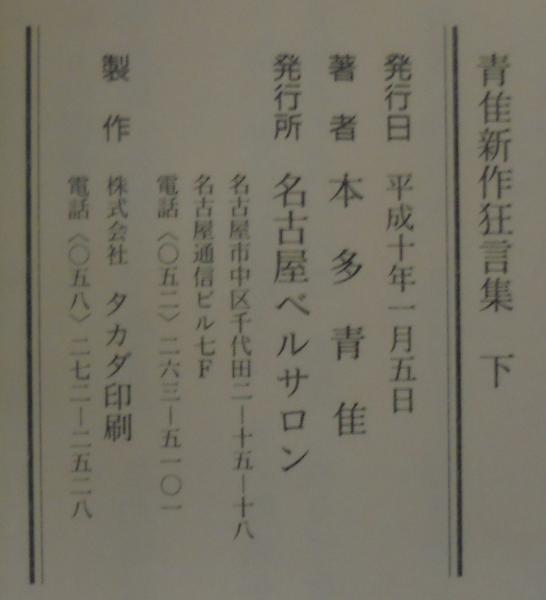 青隹新作狂言集　下
発行日　平成十年一月五日
著者　本多青隹
発行所　名古屋ベルサロン
名古屋市中区千代田二―十五―十八
名古屋通信ビル七F
電話〈〇五二〉二六三―五一〇一
製作　株式会社　タカダ印刷
電話〈〇五八〉二七二―二五二八